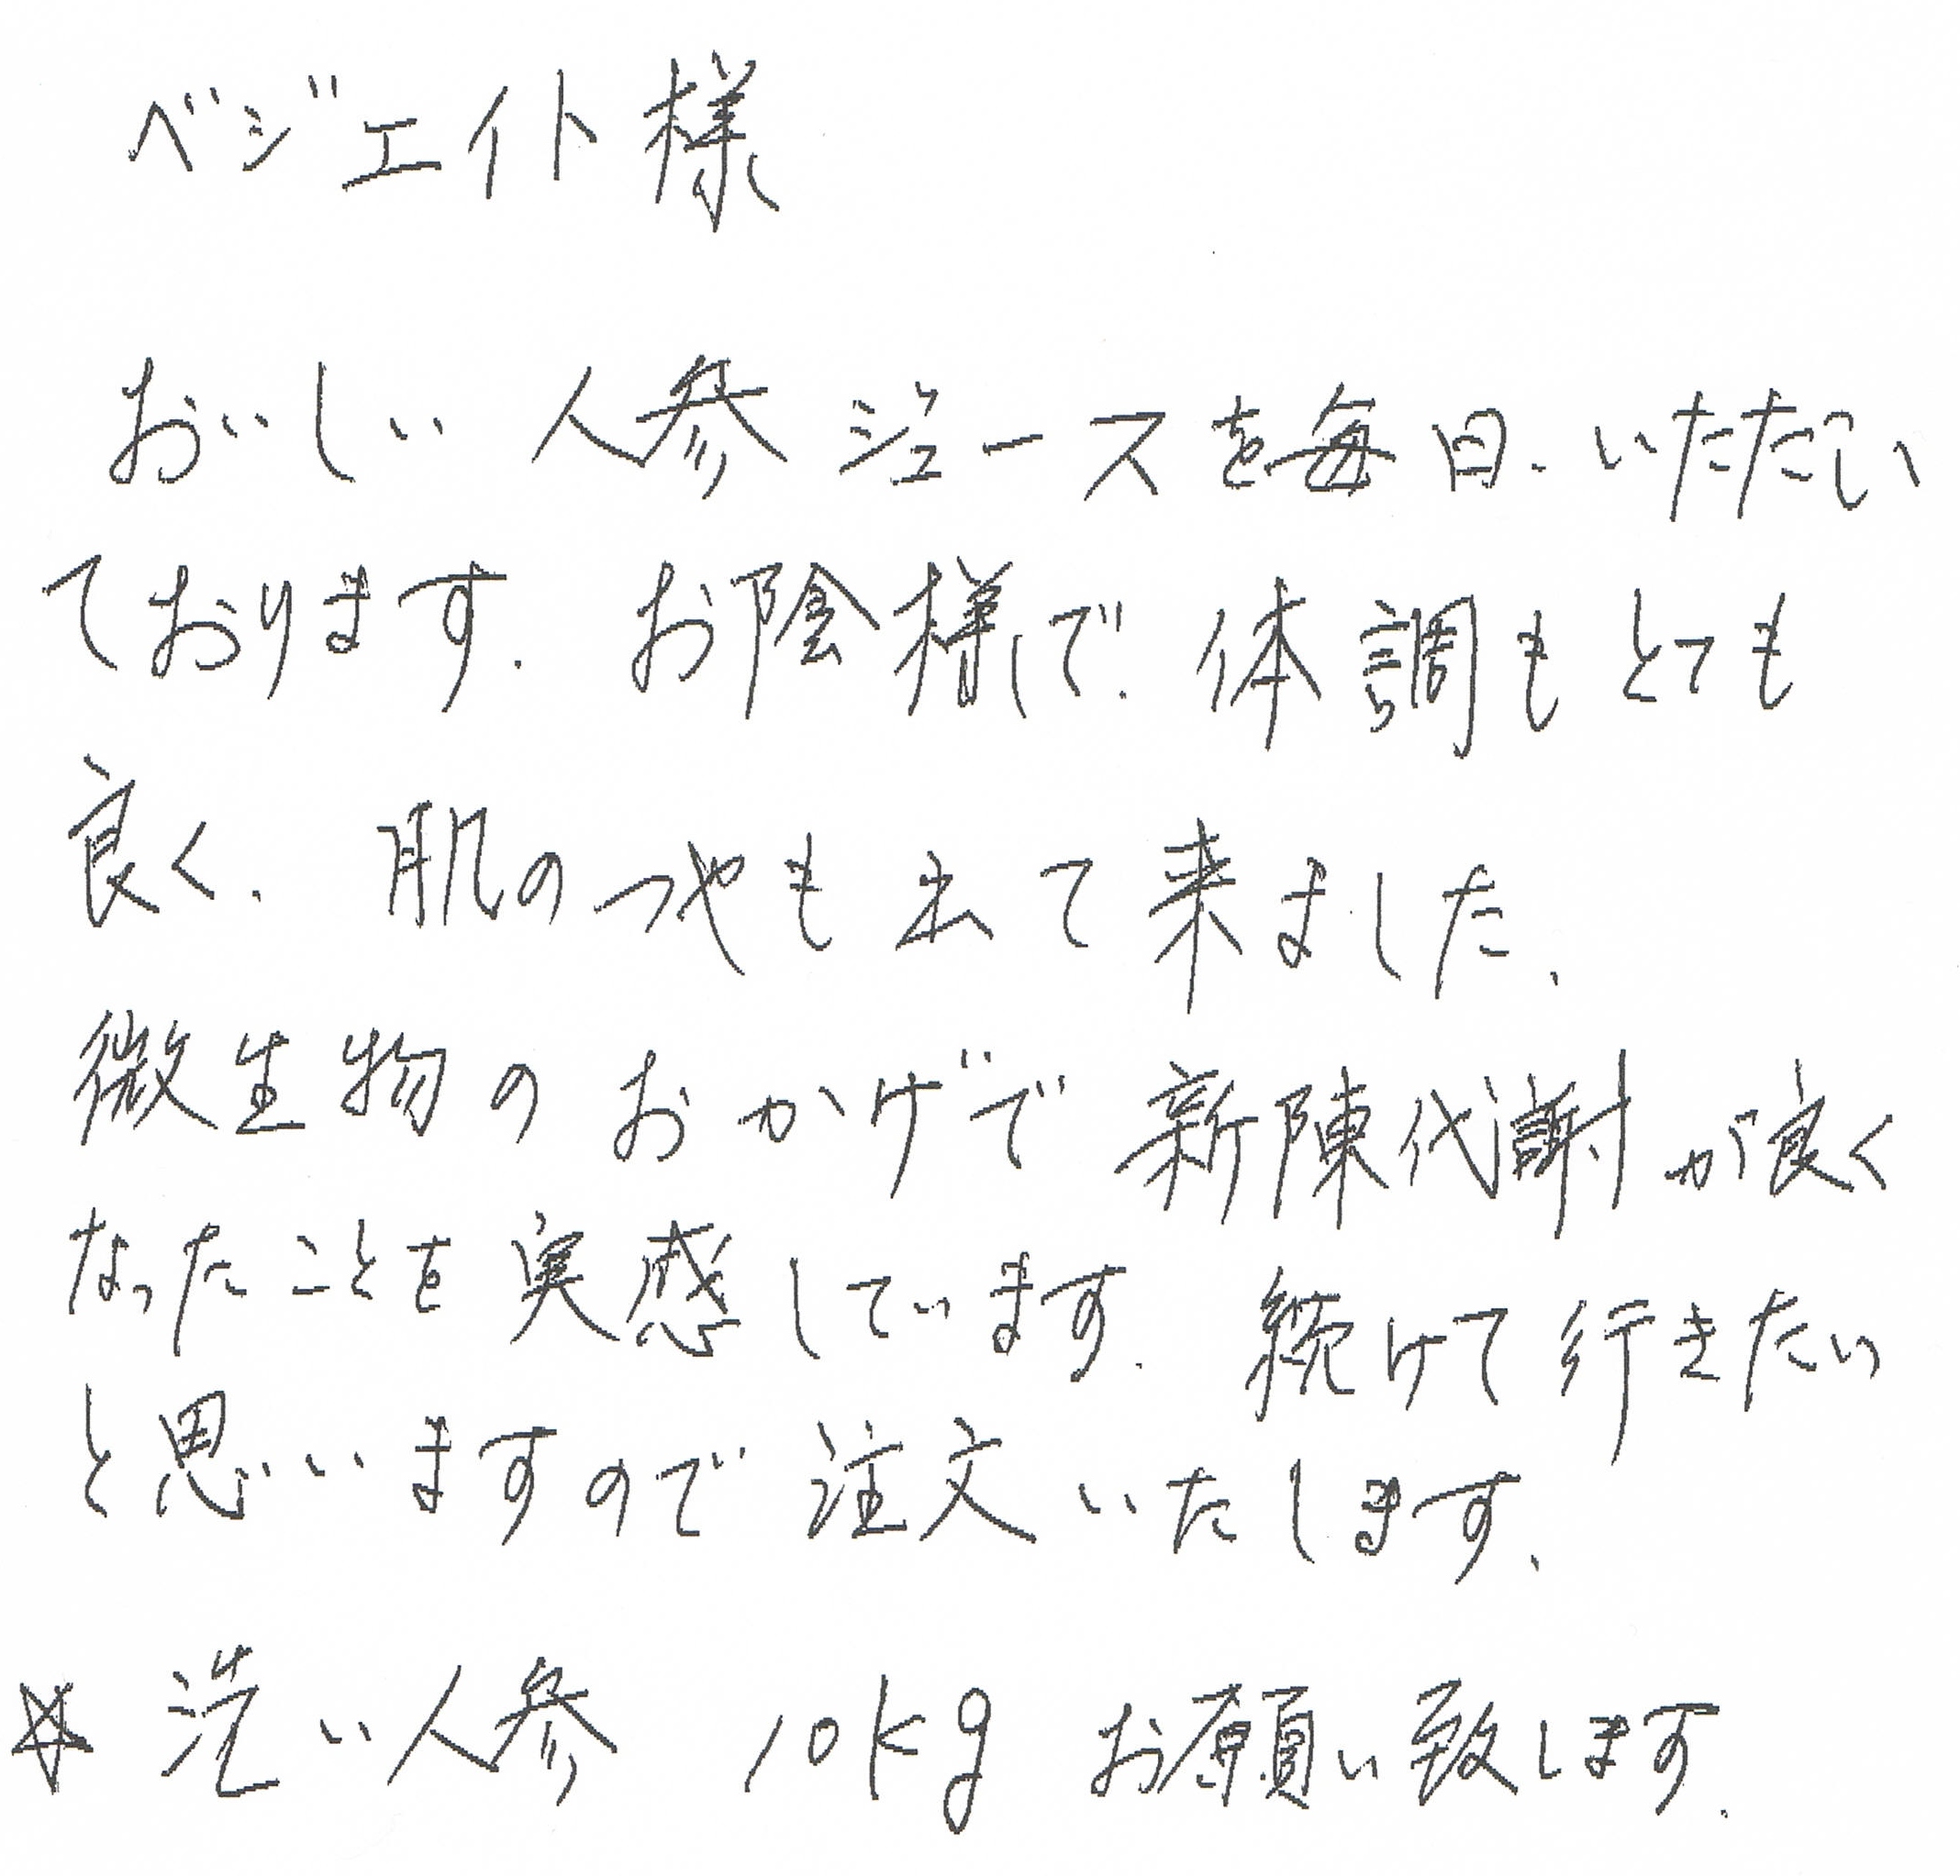 ベジエイト様
おいしい人参ジュースを毎日、いただい
ております。お陰様で、体調もとても
良く、肌のつやも出て来ました。
微生物のおかげで新陳代謝が良く
なったことを実感しています。続けて行きたい
と思いますので注文いたします。
☆洗い人参 10kgお願い致します。